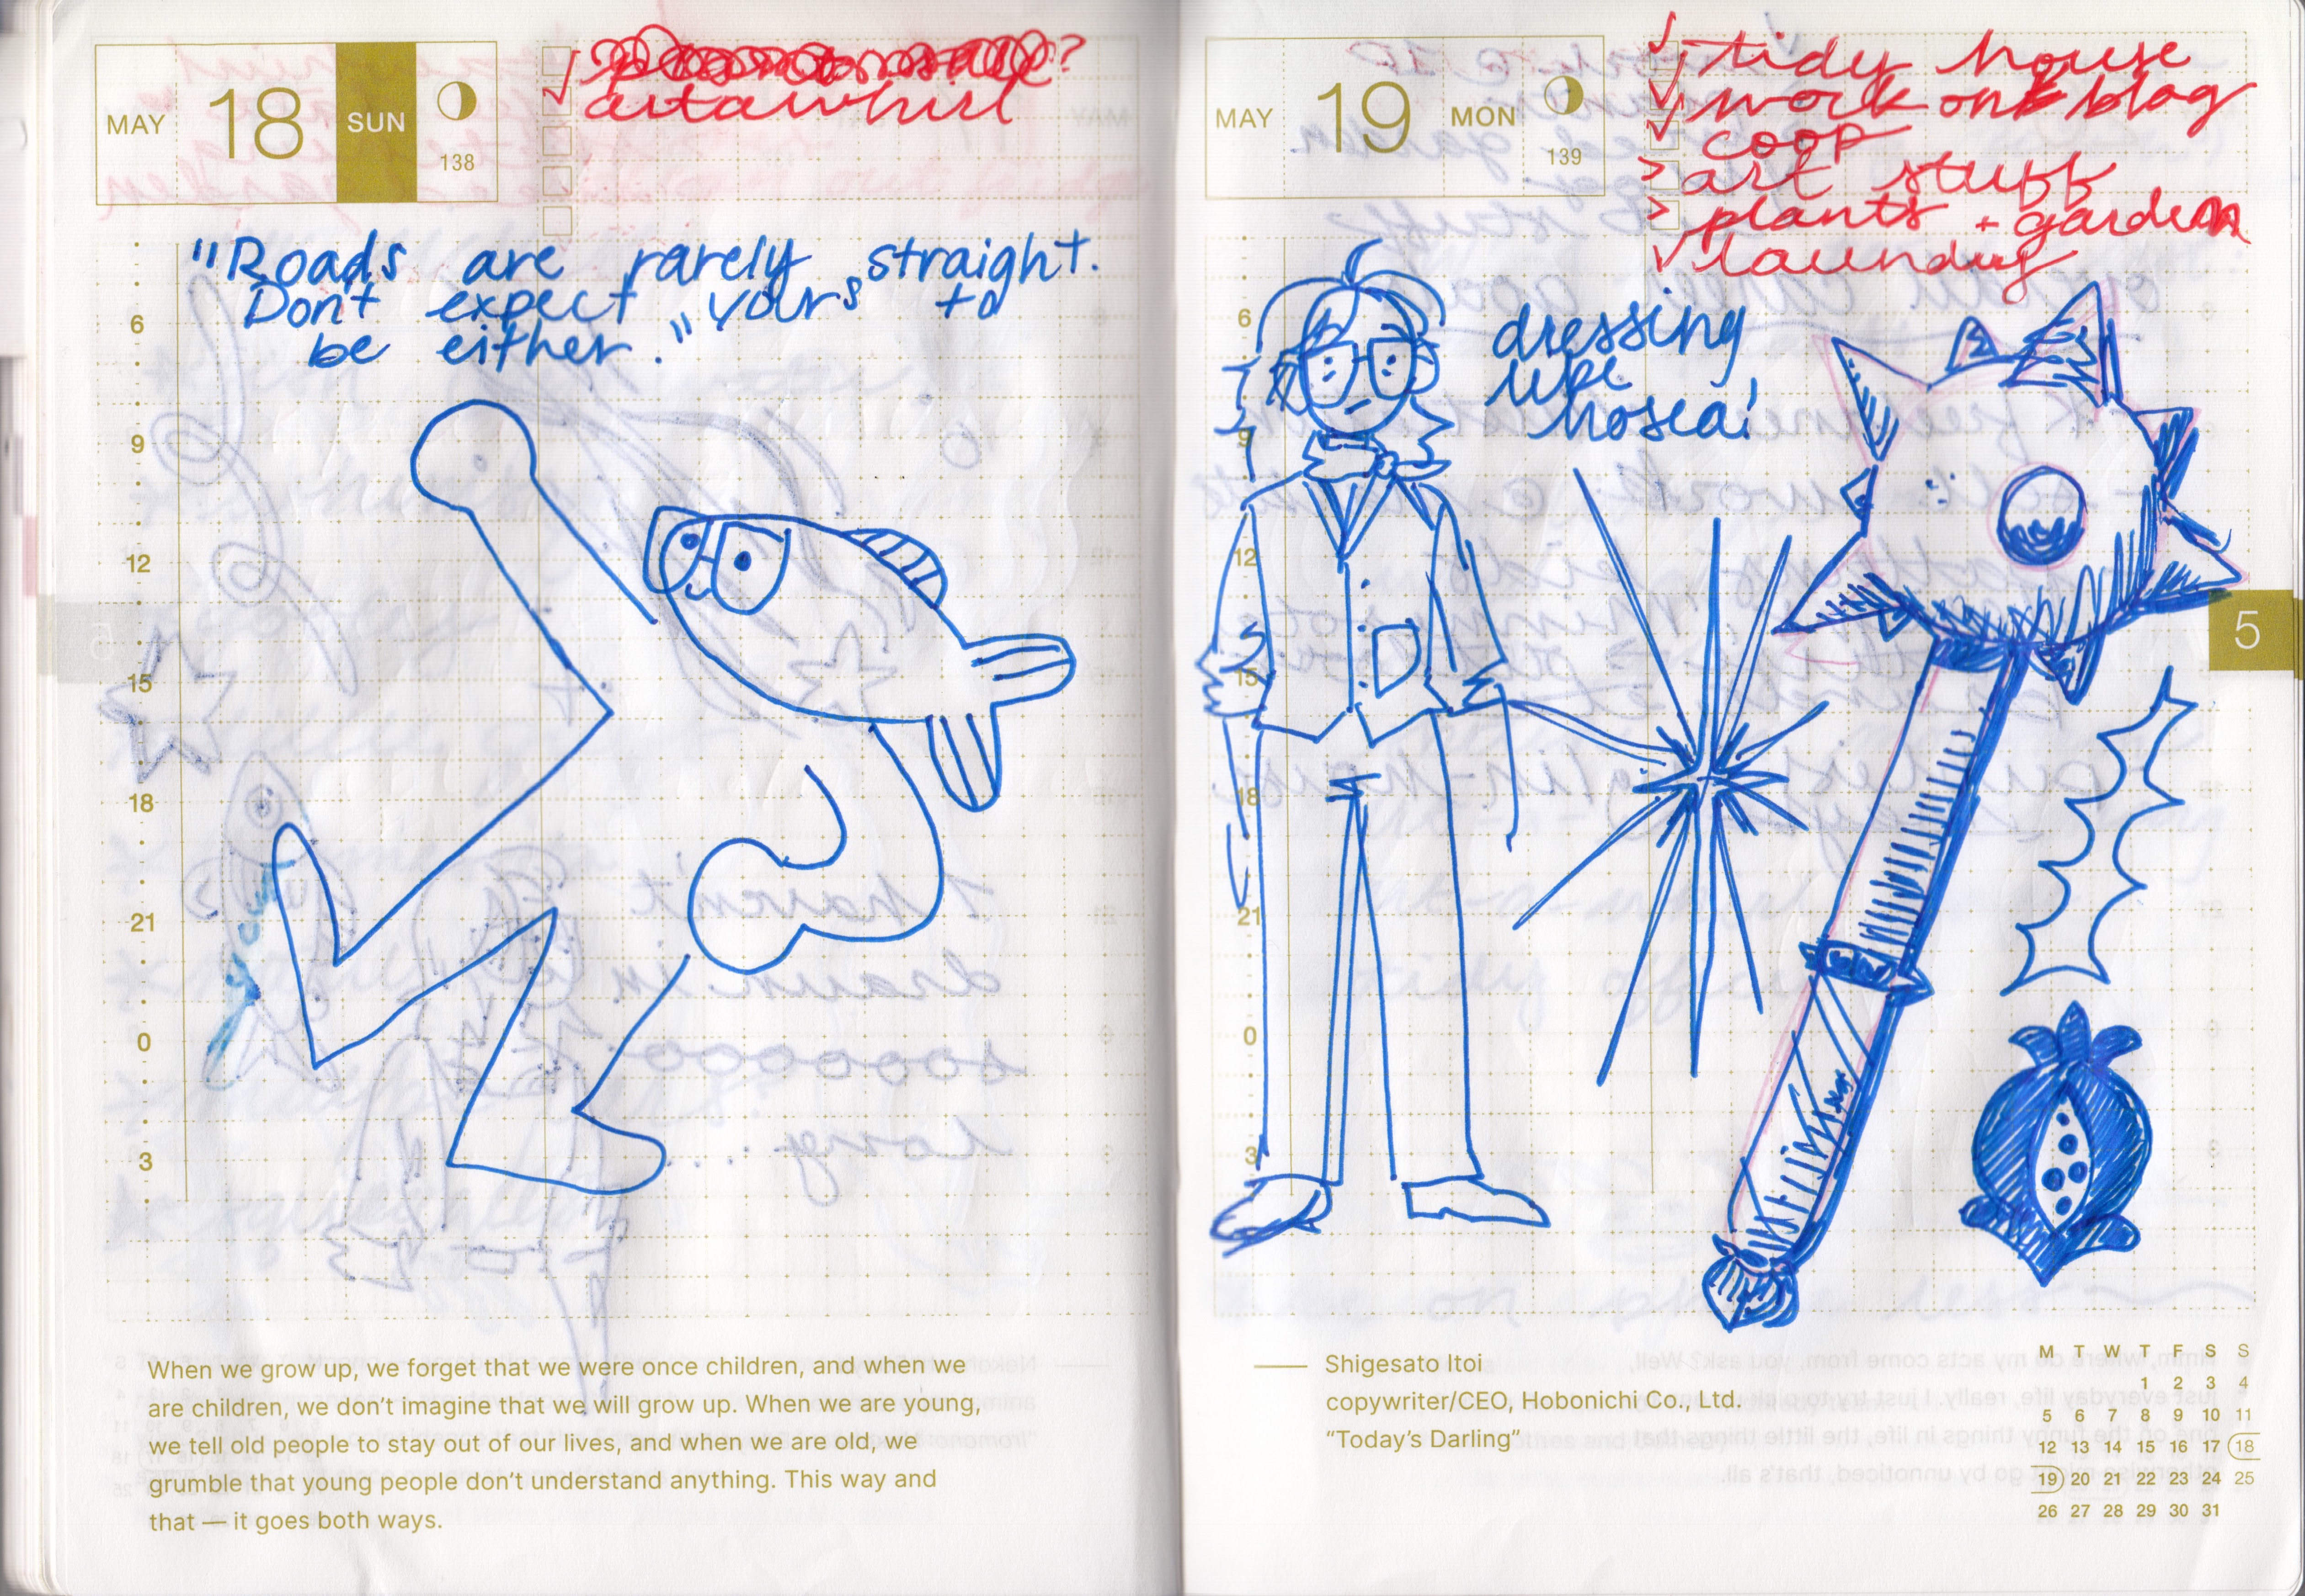 MAY 18 SUN
138
artawhirl
"Roads are rarely straight.
Don't expect yours to
be either."
6
9
12
15
18
21
0
3
When we grow up, we forget that we were once children, and when we
are children, we don't imagine that we will grow up. When we are young,
we tell old people to stay out of our lives, and when we are old, we
grumble that young people don't understand anything. This way and
that — it goes both ways.
MAY 19 MON
139
tidy house
work on blog
coop
art stuff
plants + garden
laundry
dressing
like
hosea!
6
9
12
15
18
21
0
3
5
Shigesato Itoi
copywriter/CEO, Hobonichi Co., Ltd.
"Today's Darling"
M T W T F S S
1 2 3 4
5 6 7 8 9 10 11
12 13 14 15 16 17 18
19 20 21 22 23 24 25
26 27 28 29 30 31